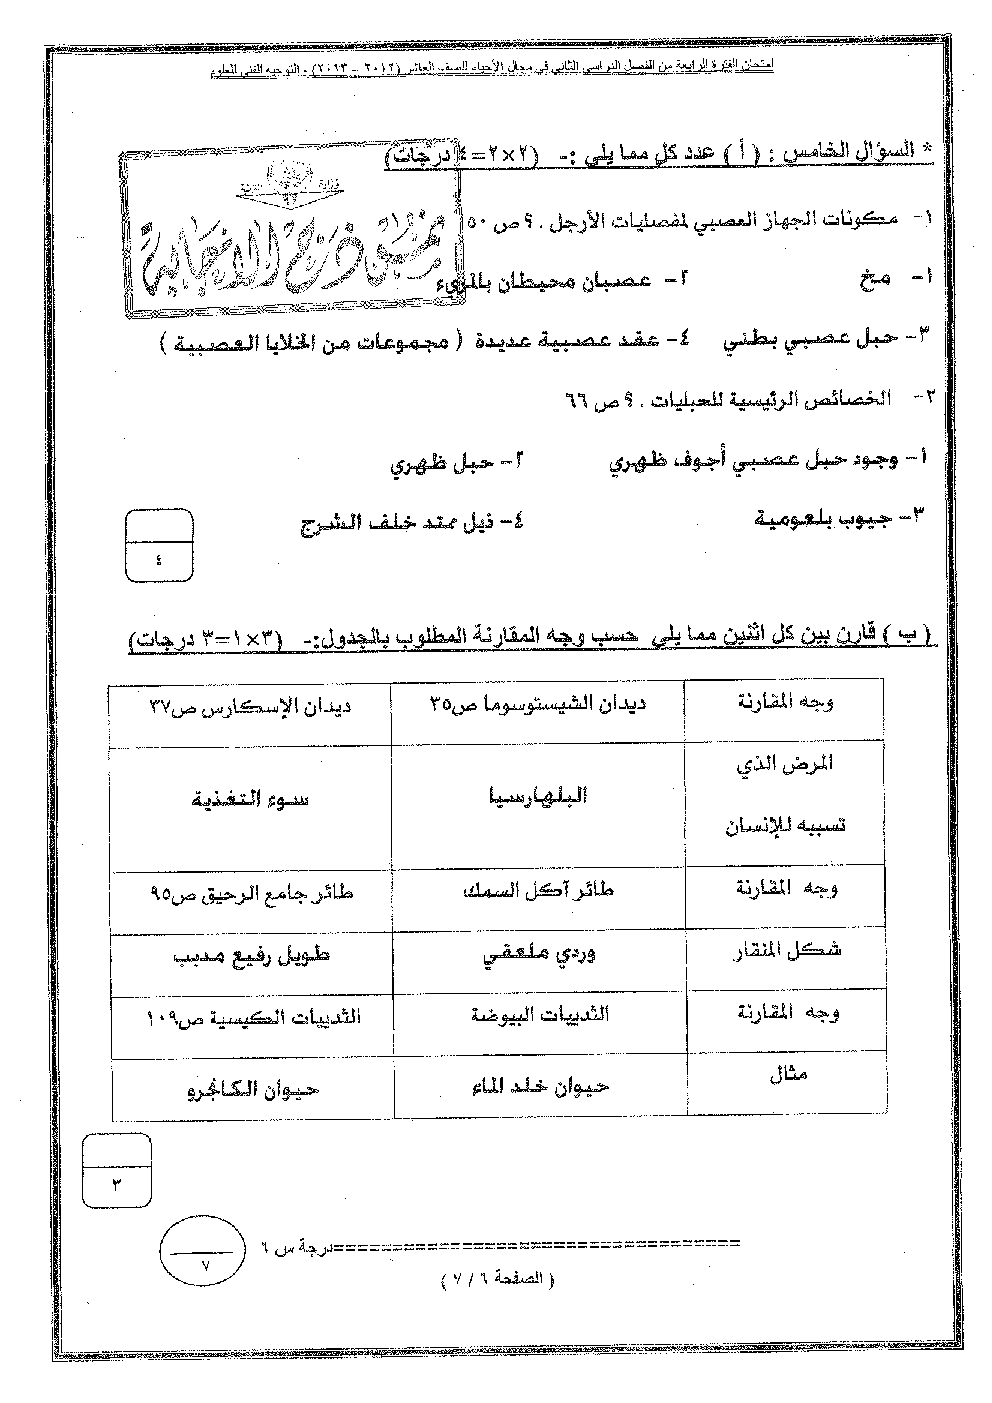 امتحان الفترة الرابعة من الفصل الدراسي الثاني في مجال الأحياء للصف العاشر (٢٠١٢ – ٢٠١٣) . التوجيه الفني للعلوم
* السؤال الخامس : ( أ ) عدد كل مما يلي :- (٢×٢=٤ درجات)
نموذج الإجابة
١- مكونات الجهاز العصبي لمفصليات الأرجل . ٩ ص ٥٠
١- مخ ٢- عصبان محيطان بالمريء
٣- حبل عصبي بطني ٤- عقد عصبية عديدة ( مجموعات من الخلايا العصبية )
٢- الخصائص الرئيسية للحبليات . ٩ ص ٦٦
١- وجود حبل عصبي أجوف ظهري ٢- حبل ظهري
٣- جيوب بلعومية ٤- ذيل ممتد خلف الشرج
٤
( ب ) قارن بين كل اثنين مما يلي حسب وجه المقارنة المطلوب بالجدول:- (٣×١=٣ درجات)
وجه المقارنة ديدان الشيستوسوما ص٣٥ ديدان الإسكارس ص٣٧
المرض الذي
تسببه للإنسان البلهارسيا سوء التغذية
وجه المقارنة طائر آكل السمك طائر جامع الرحيق ص٩٥
شكل المنقار وردي ملعقي طويل رفيع مدبب
وجه المقارنة الثدييات البيوضة الثدييات الكيسية ص١٠٩
مثال حيوان خلد الماء حيوان الكانجرو
٣
درجة س ٦
٧
( الصفحة ٦ / ٧ )